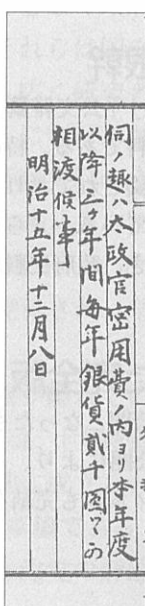 伺ノ趣ハ太政官密用費ノ内ヨリ本年度
以降三ケ年間毎年銀貨貳千圓ツヽ
相渡候事
明治十五年十二月八日